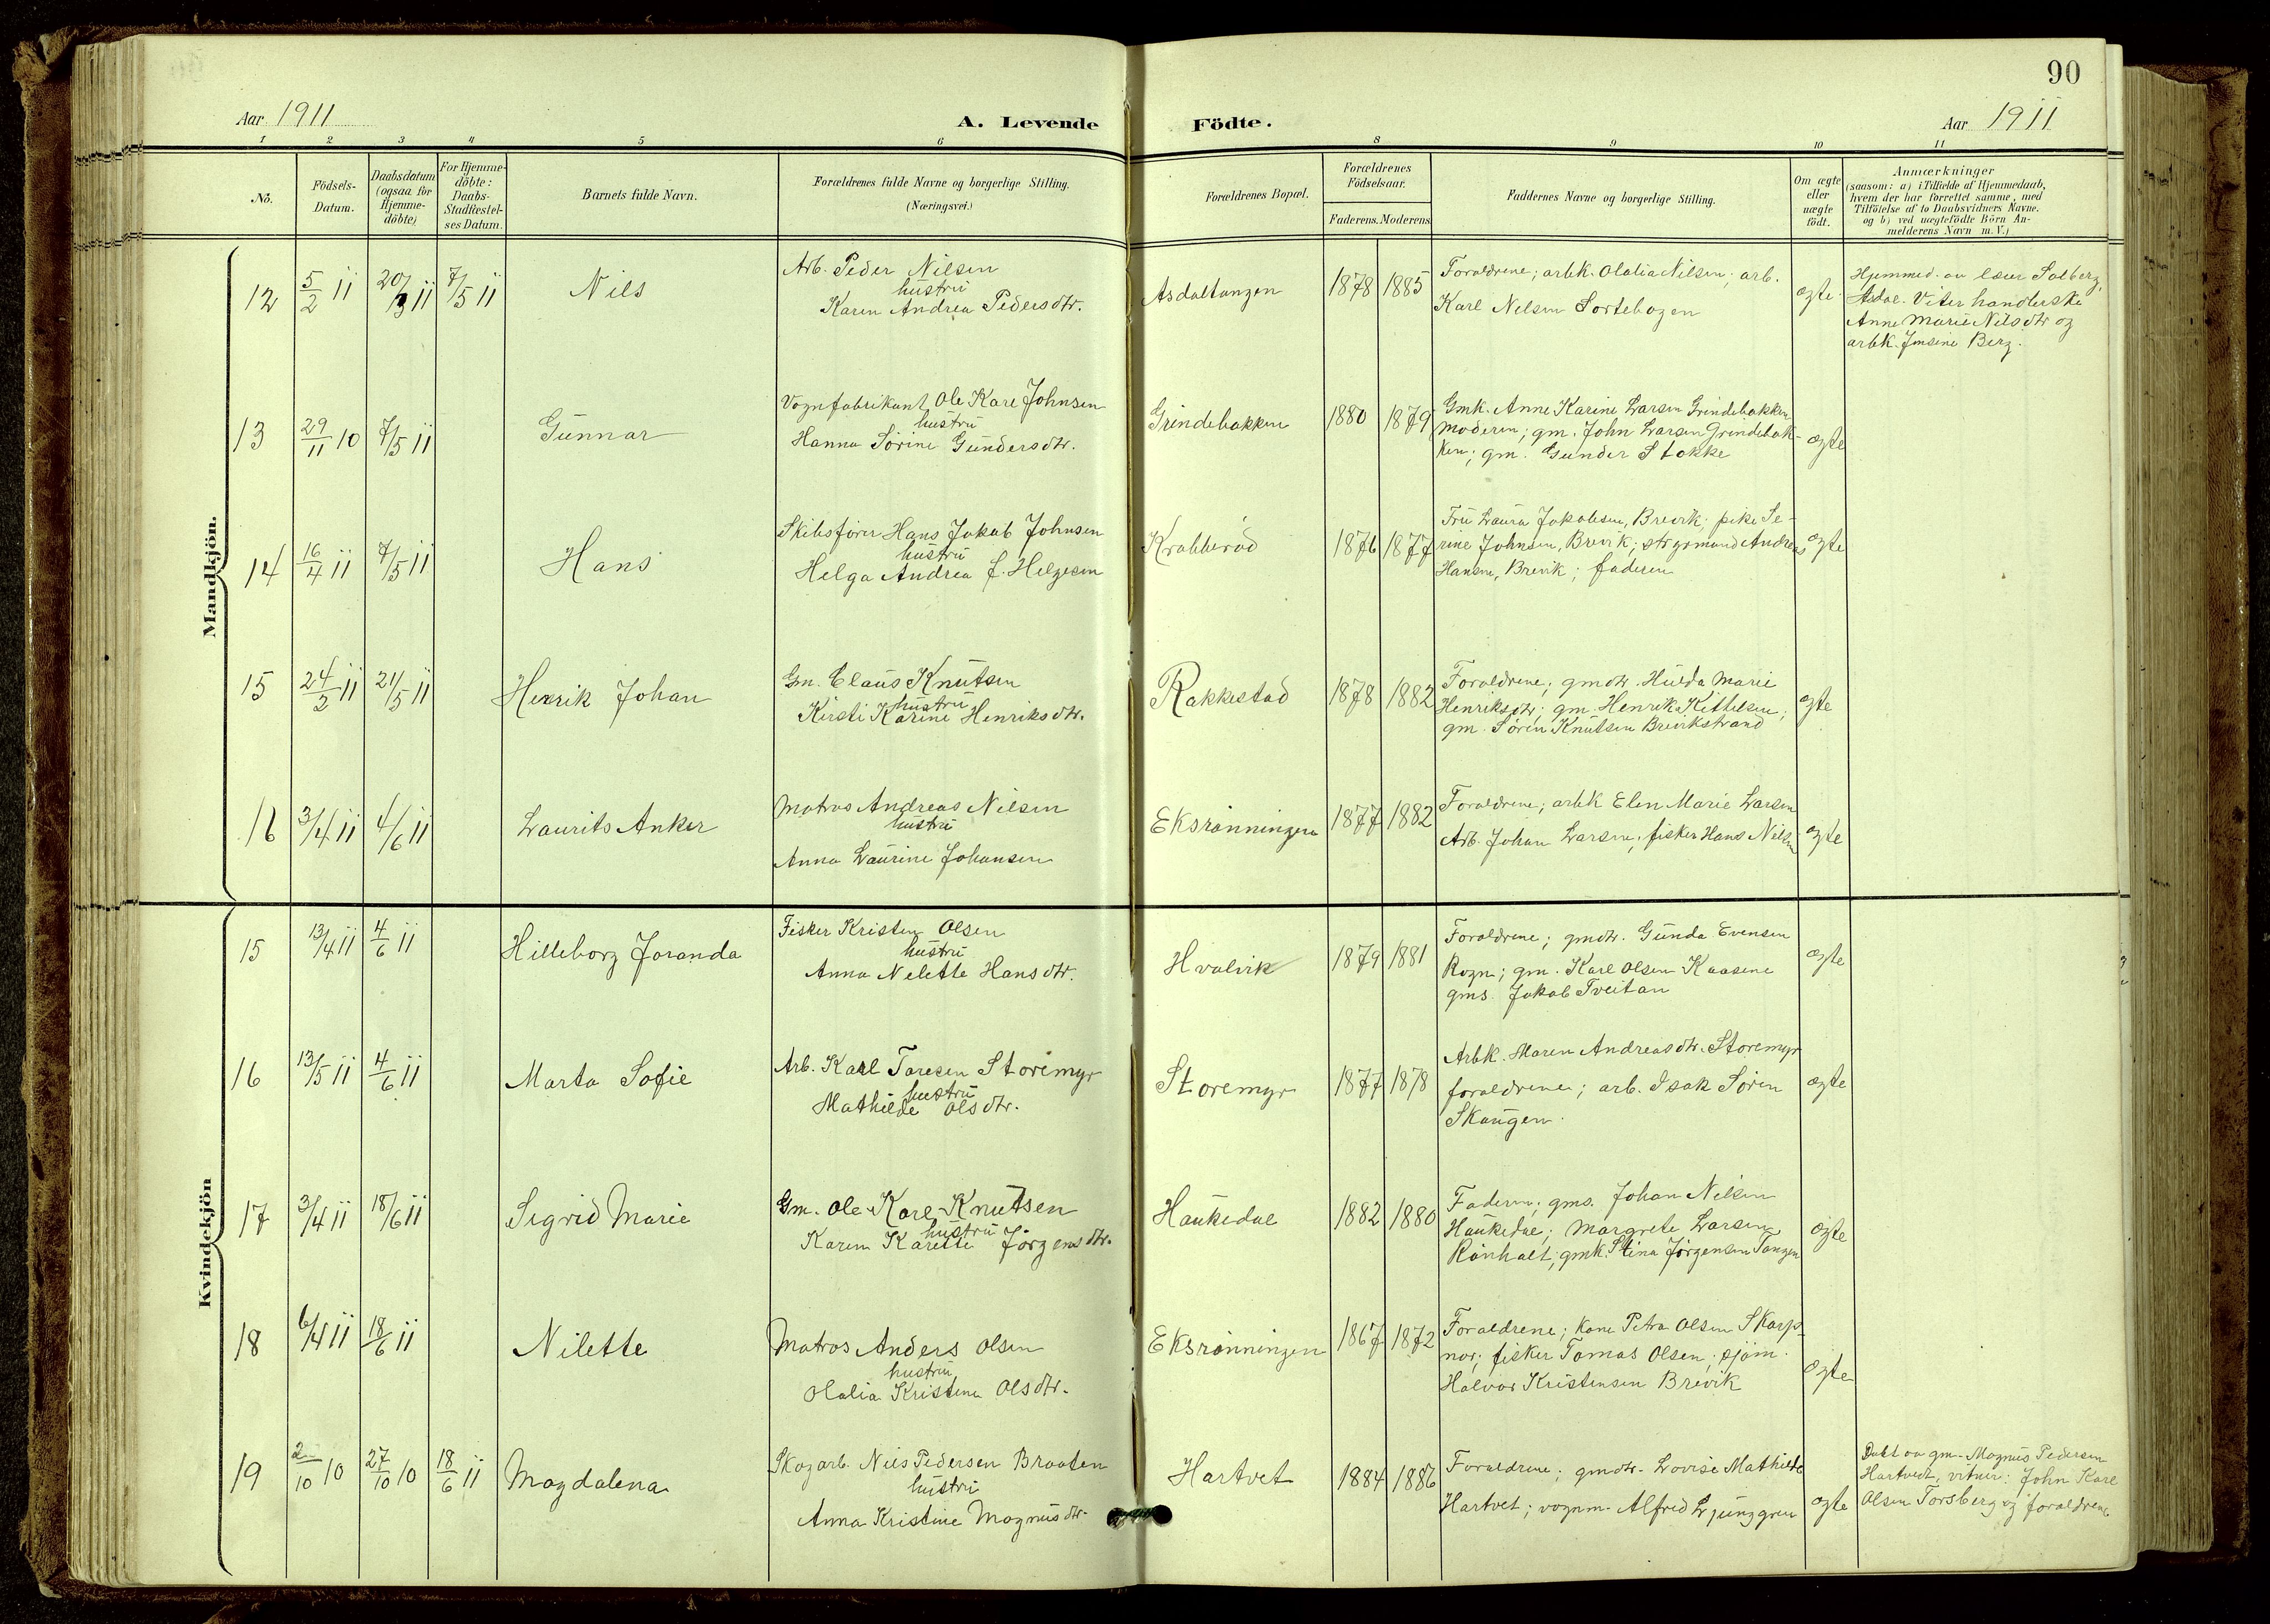 90
Aar 1911
A. Levende
Födte.
Aar 1911
1 2 3 4 5 6 8 9 10 11
No.
Födsels-
Datum.
Daabsdatum
(ogsaa for
Hjemme-
döbte)
For Hjemme-
döbte:
Daabs-
Stadfæstel-
ses Datum.
Barnets fulde Navn.
Forældrenes fulde Navne og borgerlige Stilling.
(Næringsvei.)
Forældrenes Bopæl.
Forældrenes
Födselsaar.
Faderens. Moderens.
Faddernes Navne og borgerlige Stilling.
Om ægte
eller
uægte
födt.
Anmærkninger
(saasom: a) i Tilfælde af Hjemmedaab,
hvem der har forrettet samme, med
Tilföielse af to Daabsvidners Navne.
og b) ved uægtefödte Börn An-
melderens Navn m. V.)
Mandkjön.
12
5/2 11
20/3 11
7/5 11
Nils
Arb. Peder Nilsen
hustru
Karen Andrea Pedersdtr.
Asdaltangen
1878 1885
Forældrene; arbk. Olalia Nilsen; arb.
Karl Nilsen Sortebogen
ægte
Hjemmed. av lærer Solberg,
Asdal. Viter handlerske
Anne Marie Nilsdtr og
arbk. Jensine Berg.
13
29/11 10
7/5 11
Gunnar
Vognfabrikant Ole Karl Johnsen
hustru
Hanna Sörine Gundersdtr.
Grindebakken
1880 1879
Gmk. Anne Karine Larsen Grindebakken
Moderen; gm. John Larsen Grindebak-
ken; gm. Gunder Stokke
ægte
14
16/4 11
7/5 11
Hans
Skibsförer Hans Jakob Johnsen
hustru
Helga Andrea f. Helgesen
Krabberöd
1876 1877
Fru Laura Jakobsen, Brevik; pike Se-
rine Johnsen, Brevik; styrmand Andreas
Hansen, Brevik; faderen
ægte
15
24/2 11
21/5 11
Henrik Johan
Gm. Claus Knutsen
hustru
Kirsti Karine Henriksdtr.
Rakkestad
1878 1882
Forældrene; gmdtr. Hulda Marie
Henriksdtr; gm. Henrik Kittelsen;
gm. Sören Knutsen Brevikstrand
ægte
16
3/4 11
4/6 11
Laurits Anker
Matros Andreas Nilsen
hustru
Anna Laurine Johansen
Eksrønningen
1877 1882
Forældrene; arbk Elen Marie Larsen
Arb. Johan Larsen, fisker Hans Nilsen
ægte
Kvindekjön
15
13/4 11
4/6 11
Hilleborg Joranda
Fisker Kristen Olsen
hustru
Anna Nelette Hansdtr.
Hvalvik
1879 1881
Forældrene; gmdtr. Gunda Evensen
Rogn; gm. Karl Olsen Kaasene
gms. Jakob Tveitan
ægte
16
13/5 11
4/6 11
Marta Sofie
Arb. Karl Taresen Storemyr
hustru
Mathilde Olsdtr.
Storemyr
1877 1878
Arbk. Maren Andreasdtr. Storemyr
forældrene; arb. Isak Sören
Skaugen.
ægte
17
3/4 11
18/6 11
Sigrid Marie
Gm. Ole Karl Knutsen
hustru
Karen Karette Jörgensdtr.
Haukedal
1882 1880
Faderen; gms. Johan Nilsen
Haukedal; Margrete Larsen
Rönholt; gmk. Stina Jörgensen Tangen
ægte
18
6/4 11
18/6 11
Nilette
Matros Anders Olsen
hustru
Olalia Kristine Olsdtr.
Eksrønningen
1867 1872
Forældrene; kone Petra Olsen Skarp-
nor; fisker Tomas Olsen; sjöm.
Halvor Kristensen Brevik
ægte
19
2/10 10
27/10 10
18/6 11
Magdalena
Skogarb. Nils Pedersen Braaten
hustru
Anna Kristine Magnusdtr.
Hartvet
1884 1886
Forældrene; gmdtr. Lovise Mathilde
Hartvet; vognm. Alfred Ljunggren
ægte
Döbt av gm. Magnus Pedersen
Hartvedt, vitner: John Karl
Olsen Torsberg og forældrene